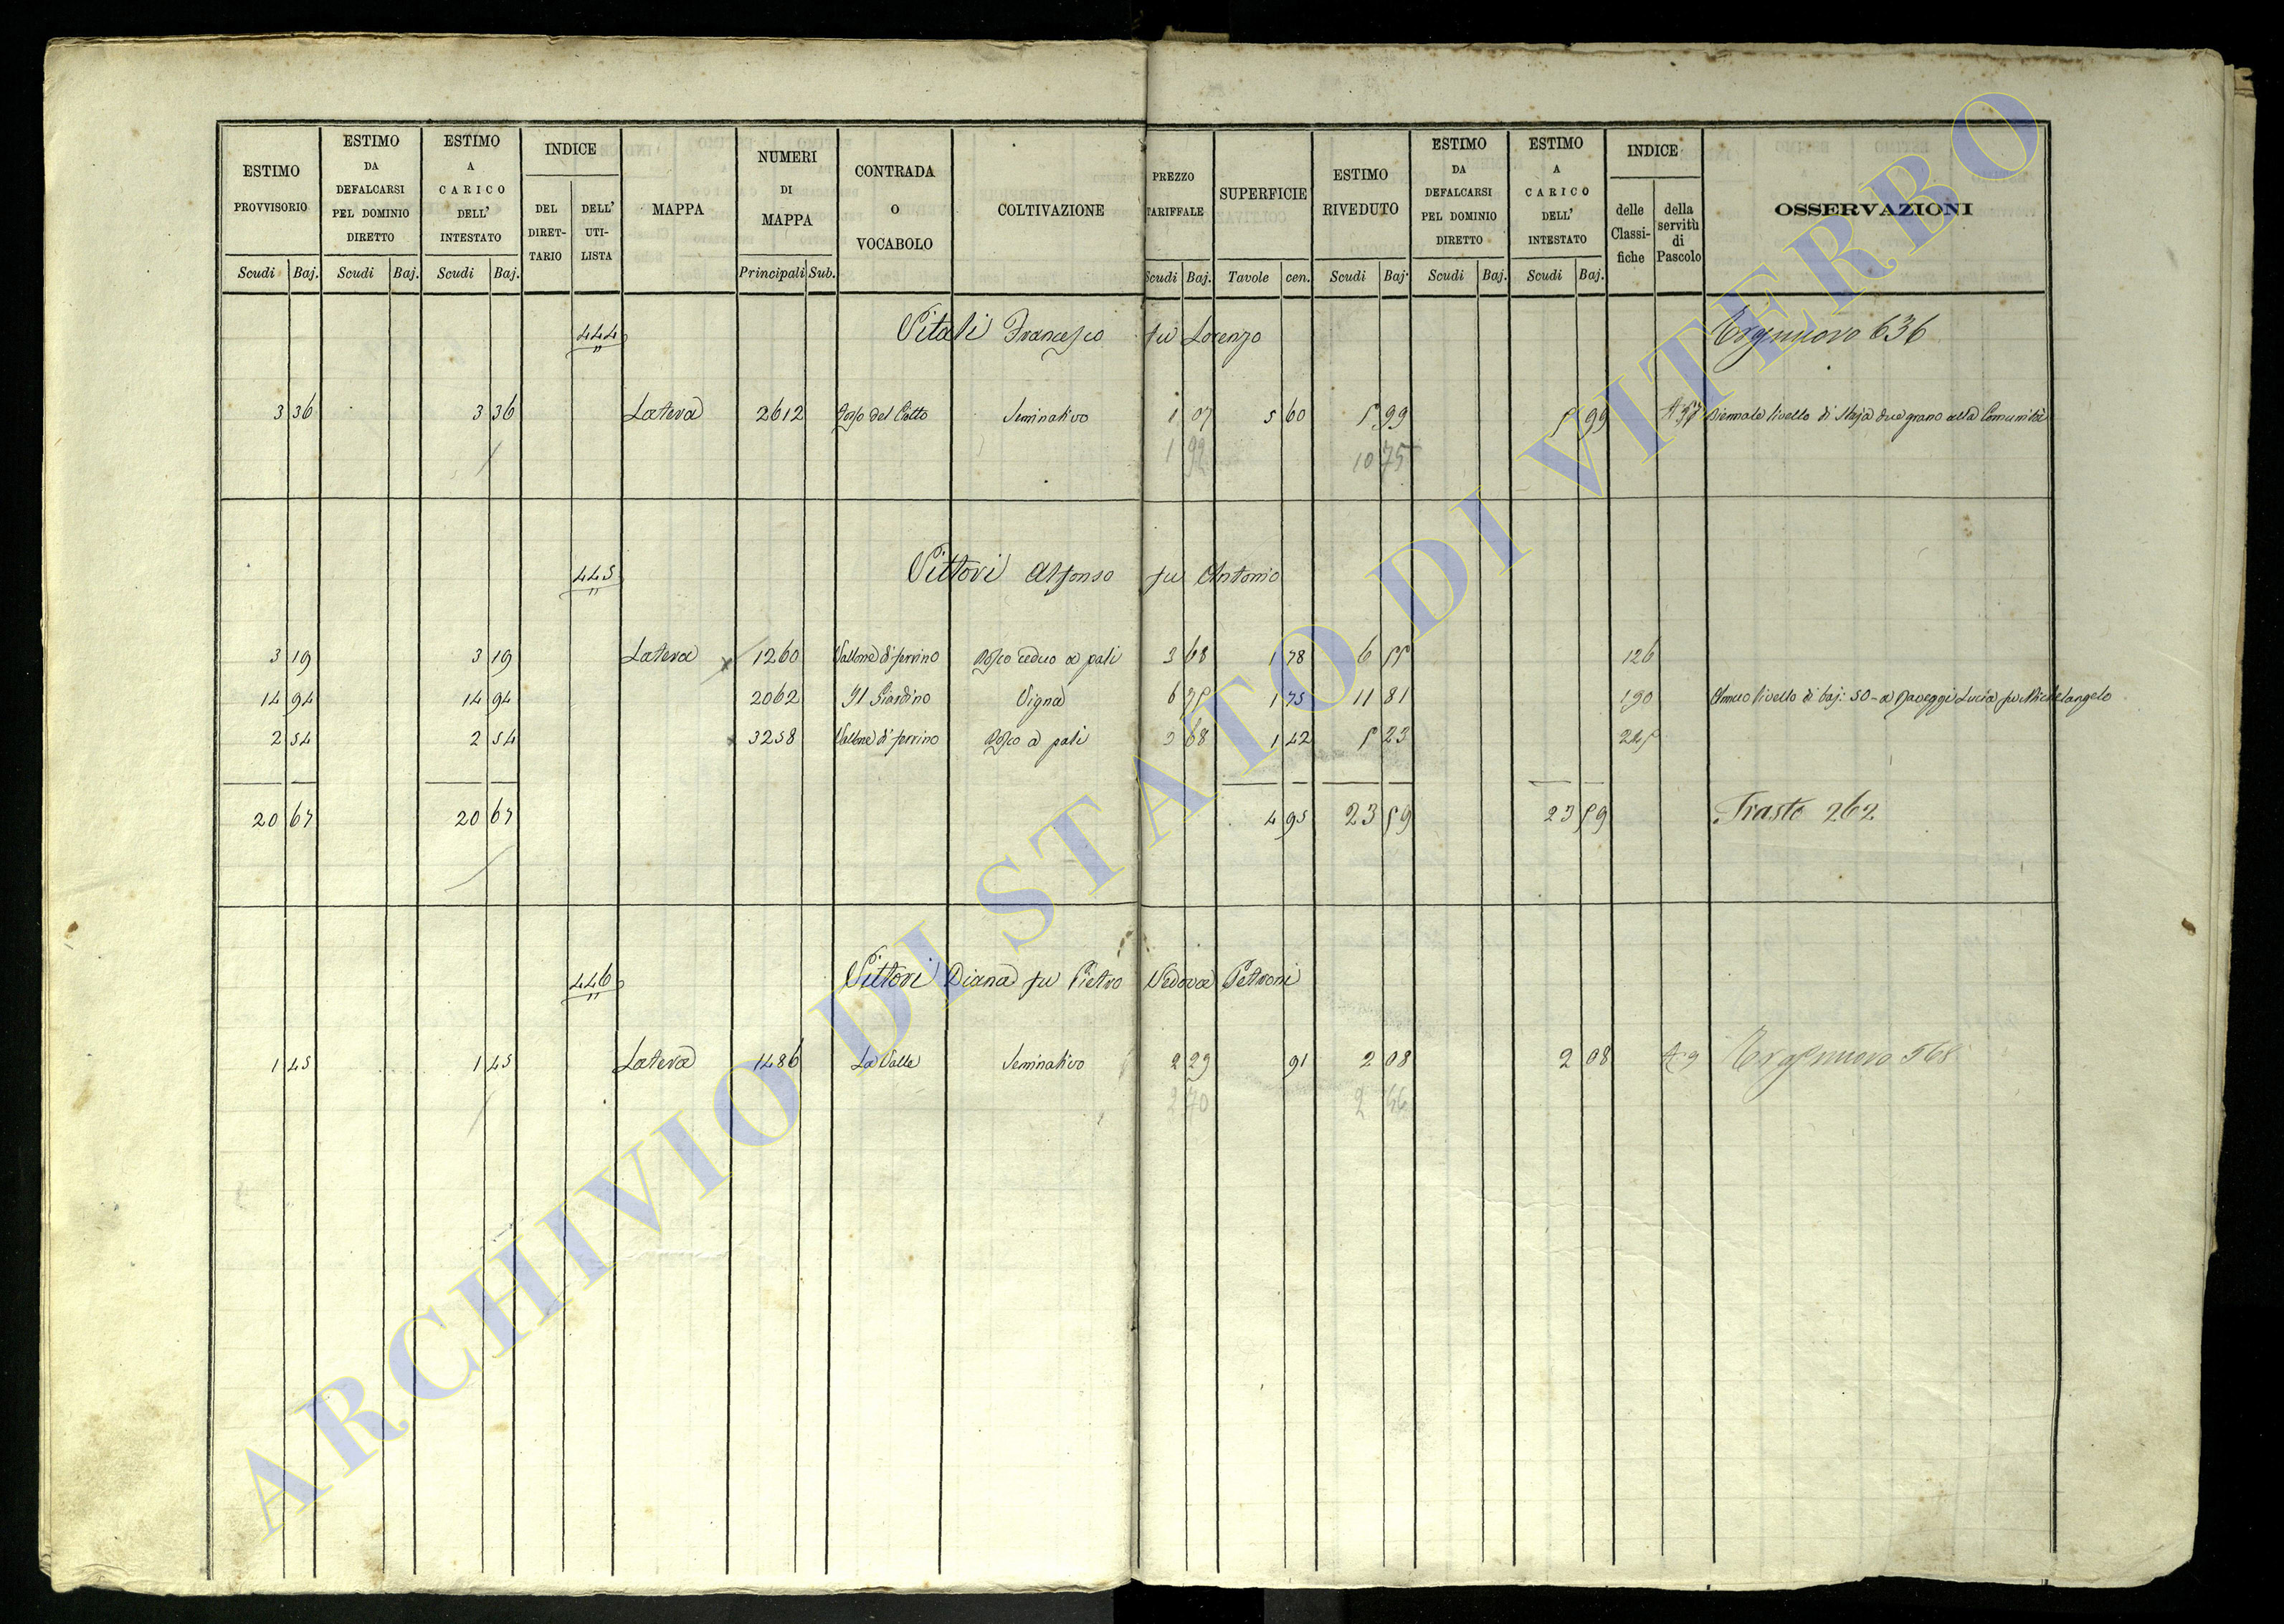 ESTIMO PROVVISORIO
Scudi Baj.
ESTIMO DA DEFALCARSI PEL DOMINIO DIRETTO
Scudi Baj.
ESTIMO A CARICO DELL' INTESTATO
Scudi Baj.
INDICE
DEL DIRET-TARIO
DELL' UTI-LISTA
MAPPA
NUMERI DI MAPPA
Principali Sub.
CONTRADA O VOCABOLO
COLTIVAZIONE
PREZZO TARIFFALE
Scudi Baj.
SUPERFICIE
Tavole cen.
ESTIMO RIVEDUTO
Scudi Baj.
ESTIMO DA DEFALCARSI PEL DOMINIO DIRETTO
Scudi Baj.
ESTIMO A CARICO DELL' INTESTATO
Scudi Baj.
INDICE
delle Classi-fiche
della servitù di Pascolo
OSSERVAZIONI
444 Vitali Francesco fu Lorenzo 636
3 36 3 36 Latera 2612 del Seminativo 1 07 5 60 5 99 5 99 Biennale livello di Staja due grano alla Comunità
1 92 10 75
445 Vittori Alfonso fu Antonio
3 19 3 19 Latera 1260 Vallone di ferrino Bosco ceduo a pali 3 68 1 78 6 55 126
14 94 14 94 2062 Il Giardino Vigna 6 75 1 75 11 81 190 Annuo livello di baj: 50 a Lucia fu Michelangelo
2 54 2 54 3258 Vallone di ferrino Bosco a pali 3 68 1 42 5 23
20 67 20 67 4 95 23 59 23 59 262
446 Vittori Diana fu Pietro Vedova Petroni
1 45 1 45 Latera 1486 La Valle Seminativo 2 29 91 2 08 2 08 568
2 70 2 46
ARCHIVIO DI STATO DI VITERBO